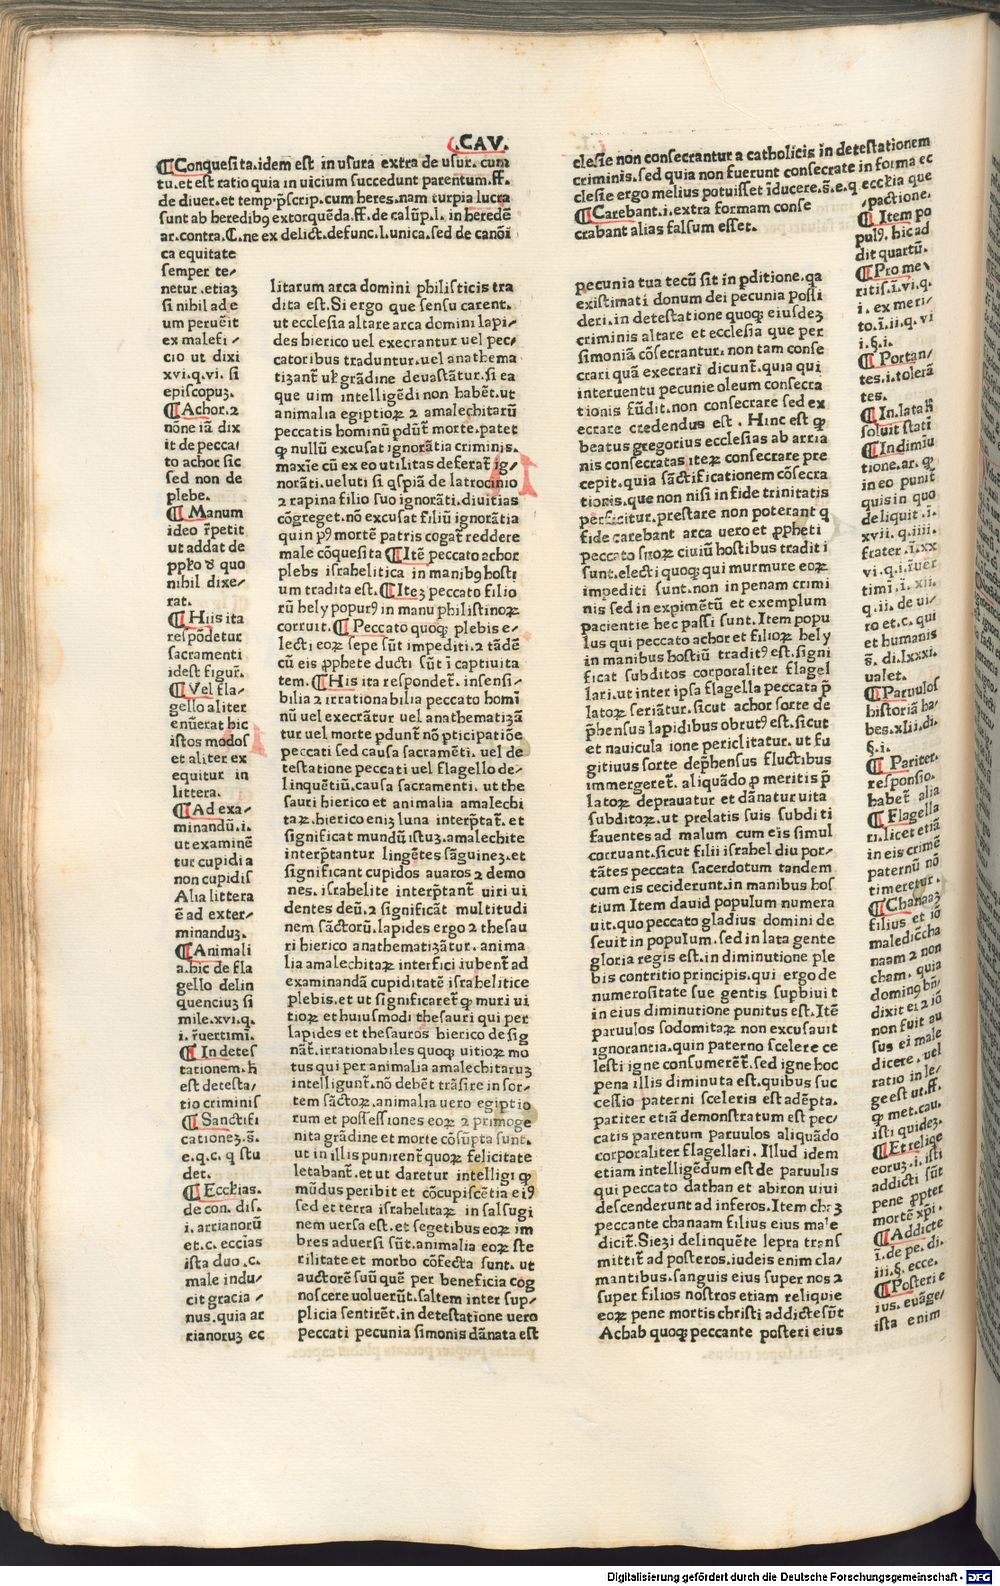 .CAV.
¶Conquesita.idem est in usura extra de usur. cum
tu.et est ratio quia in uicium succedunt parentum.ff.
de diuer.et temp.p̄scrip.cum heres.nam turpia lucra
sunt ab heredibꝰ extorquēda.ff. de calūp.l. in heredē
ar.contra.C.ne ex delict̄.defunc.l.unica.sed de canōi
ca equitate
semper te⸗
netur.etiaꝫ
si nihil ad e
um peruēit
ex malefi⸗
cio ut dixi
xvi.q.vi. si
episcopuꝫ.
¶Achor.⁊
nōne iā dix
it de pecca⸗
to achor sic
sed non de
plebe.
¶Manum
ideo r̄petit
ut addat de
ppło ꝺ quo
nihil dixe⸗
rat.
¶Hiis ita
respōdetur
sacramenti
idest figur̄.
¶Vel fla⸗
gello aliter
enūerat hic
istos modos
et aliter ex
equitur in
littera.
¶Ad exa⸗
minandū.i.
ut examinē
tur cupidi a
non cupidis
Alia littera
ē ad exter⸗
minanduꝫ.
¶Animali
a.hic de fla
gello delin
quenciuꝫ si
mile.xvi.q.
i. r̄uertimī.
¶In detes
tationem.h̄
est detesta⸗
tio criminis
¶Sanctifi
cationeꝫ.s̄.
e.q.c. q stu
det.
¶Eccłias.
de con. dis.
i. arrianorū
et.c. ecc̄ias
ista duo.c.
male indu⸗
cit gracia⸗
nus.quia ar
rianoruꝫ ec
litarum arca domini philisticis tra
dita est.Si ergo que sensu carent.
ut ecclesia altare arca domini lapi⸗
des hierico uel execrantur uel pec⸗
catoribus traduntur.uel anathema
tizant̄ uł grādine deuastātur.si ea
que uim intelligēdi non habēt.ut
animalia egiptioꝝ ⁊ amalechitarū
peccatis hominū pdūt̄ morte.patet
ꝙ nullū excusat ignorātia criminis.
maxīe cū ex eo utilitas deferat̄ ig⸗
norāti.ueluti si qspiā de latrocinio
⁊ rapina filio suo ignorāti.diuitias
cōgreget.nō excusat filiū ignorātia
quin pꝰ mortē patris cogat̄ reddere
male cōquesita ¶Itē peccato achor
plebs israhelitica in manibꝰ hosti
um tradita est.¶Iteꝫ peccato filio
rū hely popurꝰ in manu philistinoꝝ
corruit.¶Peccato quoqꝫ plebis e⸗
lecti eoꝝ sepe sūt impediti.⁊ tādē
cū eis ꝓphete ducti sūt ī captiuita
tem.¶His ita respondet̄. insensi⸗
bilia ⁊ irrationabilia peccato homī
nū uel execrātur uel anathematizā
tur uel morte pdunt̄ nō pticipatiōe
peccati sed causa sacramēti. uel de
testatione peccati uel flagello de⸗
linquētiū.causa sacramenti. ut the
sauri hierico et animalia amalechi
taꝝ.hierico eniꝫ luna interp̄tat̄. et
significat mundū istuꝫ.amalechite
interp̄tantur lingētes sāguineꝫ.et
significant cupidos auaros ⁊ demo
nes. israhelite interp̄tant̄ uiri ui
dentes deū.⁊ significāt multitudi
nem sāctorū.lapides ergo ⁊ thesau
ri hierico anathematizātur. anima
lia amalechitaꝝ interfici iubent̄ ad
examinandā cupiditatē israhelitice
plebis.et ut significaret̄ ꝙ muri ui
tioꝝ et huiusmodi thesauri qui per
lapides et thesauros hierico desig
nāt̄.irrationabiles quoqꝫ uitioꝝ mo
tus qui per animalia amalechitaruꝫ
intelligunt̄.nō debēt trāsire in sor⸗
tem sāctoꝝ.animalia uero egiptio
rum et possessiones eoꝝ ⁊ primoge
nita grādine et morte cōsūpta sunt.
ut in illis punirent̄ quoꝝ felicitate
letabant̄.et ut daretur intelligi ꝙ
mūdus peribit et cōcupiscētia eiꝰ
sed et terra israhelitaꝝ in salsugi
nem uersa est.et segetibus eoꝝ im
bres aduersi sūt.animalia eoꝝ ste
rilitate et morbo cōfecta sunt. ut
auctorē suū quē per beneficia cog
noscere uoluerūt.saltem inter sup⸗
plicia sentirēt.in detestatione uero
peccati pecunia simonis dānata est
clesie non consecrantur a catholicis in detestationem
criminis.sed quia non fuerunt consecrate in forma ec
clesie ergo melius potuisset īducere.s̄.e.q eccłia que
¶Carebant.i.extra formam conse
crabant alias falsum esset.
pecunia tua tecū sit in pditione.qa
existimati donum dei pecunia possi
deri.in detestatione quoqꝫ eiusdeꝫ
criminis altare et ecclesia que per
simoniā cōsecrantur. non tam conse
crari quā execrari dicunt̄.quia qui
interuentu pecunie oleum consecra
tionis fūdit.non consecrare sed ex
ecrare credendus est. Hinc est ꝙ
beatus gregorius ecclesias ab arria
nis consecratas iteꝝ consecrare pre
cepit.quia sāctificationem cōsecra
tionis.que non nisi in fide trinitatis
perficitur.prestare non poterant q
fide carebant arca uero et ꝓpheti
peccato suoꝝ ciuiū hostibus traditi
sunt.electi quoqꝫ qui murmure eoꝝ
impediti sunt.non in penam crimi
nis sed in expimētū et exemplum
pacientie hec passi sunt.Item popu
lus qui peccato achor et filioꝝ hely
in manibus hostiū traditꝰ est.signi
ficat subditos corporaliter flagel
lari.ut inter ipsa flagella peccata p̄
latoꝝ seriātur.sicut achor sorte de
p̄hensus lapidibus obrutꝰ est.sicut
et nauicula ione periclitatur. ut fu
gitiuus sorte dep̄hensus fluctibus
immergeret̄. aliquādo ꝓ meritis p̄
latoꝝ deprauatur et dānatur uita
subditoꝝ.ut prelatis suis subditi
fauentes ad malum cum eis simul
corruant.sicut filii israhel diu por⸗
tātes peccata sacerdotum tandem
cum eis ceciderunt.in manibus hos
tium Item dauid populum numera
uit.quo peccato gladius domini de
seuit in populum.sed in lata gente
gloria regis est.in diminutione ple
bis contritio principis.qui ergo de
numerositate sue gentis supbiuit
in eius diminutione punitus est.Itē
paruulos sodomitaꝝ non excusauit
ignorantia.quin paterno scelere ce
lesti igne consumerēt̄.sed igne hoc
pena illis diminuta est.quibus suc
cessio paterni sceleris est adēpta.
pariter etiā demonstratum est pec⸗
catis parentum paruulos aliquādo
corporaliter flagellari. Illud idem
etiam intelligēdum est de paruulis
qui peccato dathan et abiron uiui
descenderunt ad inferos.Item cha
peccante chanaam filius eius male
dicit̄.Siezi delinquēte lepra trans
mittit̄ ad posteros.iudeis enim cla⸗
mantibus.sanguis eius super nos ⁊
super filios nostros etiam reliquie
eoꝝ pene mortis christi addicte sūt
Achab quoqꝫ peccante posteri eius
pactione.
¶Item po
pulꝰ. hic ad
dit quartū.
¶Pro me⸗
ritis.ī.vi.q.
i. ex meri⸗
to.ī.ii.q. vi
i.§.i.
¶Portan⸗
tes.i.tolerā
tes.
¶In.lata
soluit stati
¶In diminu
tione.ar. ꝙ
in eo punit
quis in quo
deliquit .ī.
xvii. q.iiii.
frater .ī.xx
vi.q.ī.r̄uer
timī.ī. xii.
q.ii. de ui⸗
ro et.c. qui
et humanis
s̄. di.lxxxi.
ualet.
¶Paruulos
historiā ha⸗
bes.xlii.di.
§.i.
¶Pariter.
responsio.
habet̄ alia
¶Flagella
ri.licet etiā
in eis crimē
paternū nō
timeretur.
¶Chanaaꝫ
filius et iō
maledic̄cha
naam ⁊ non
cham. quia
dominꝰ bn̄
dixit ei ⁊ iō
non fuit au
sus ei male
dicere. uel
ratio in le⸗
ge est ut.ff.
ꝙ met.cau.
isti quideꝫ.
¶Et reliqe
eoruꝫ.i. isti
addicti sūt
pene ꝓpter
mortē xp̄i.
¶Addicte
ī.de pe. di.
iii.§. ecce.
¶Posteri e
ius. euāge⸗
ista enim
Digitalisierung gefördert durch die Deutsche Forschungsgemeinschaft - DFG